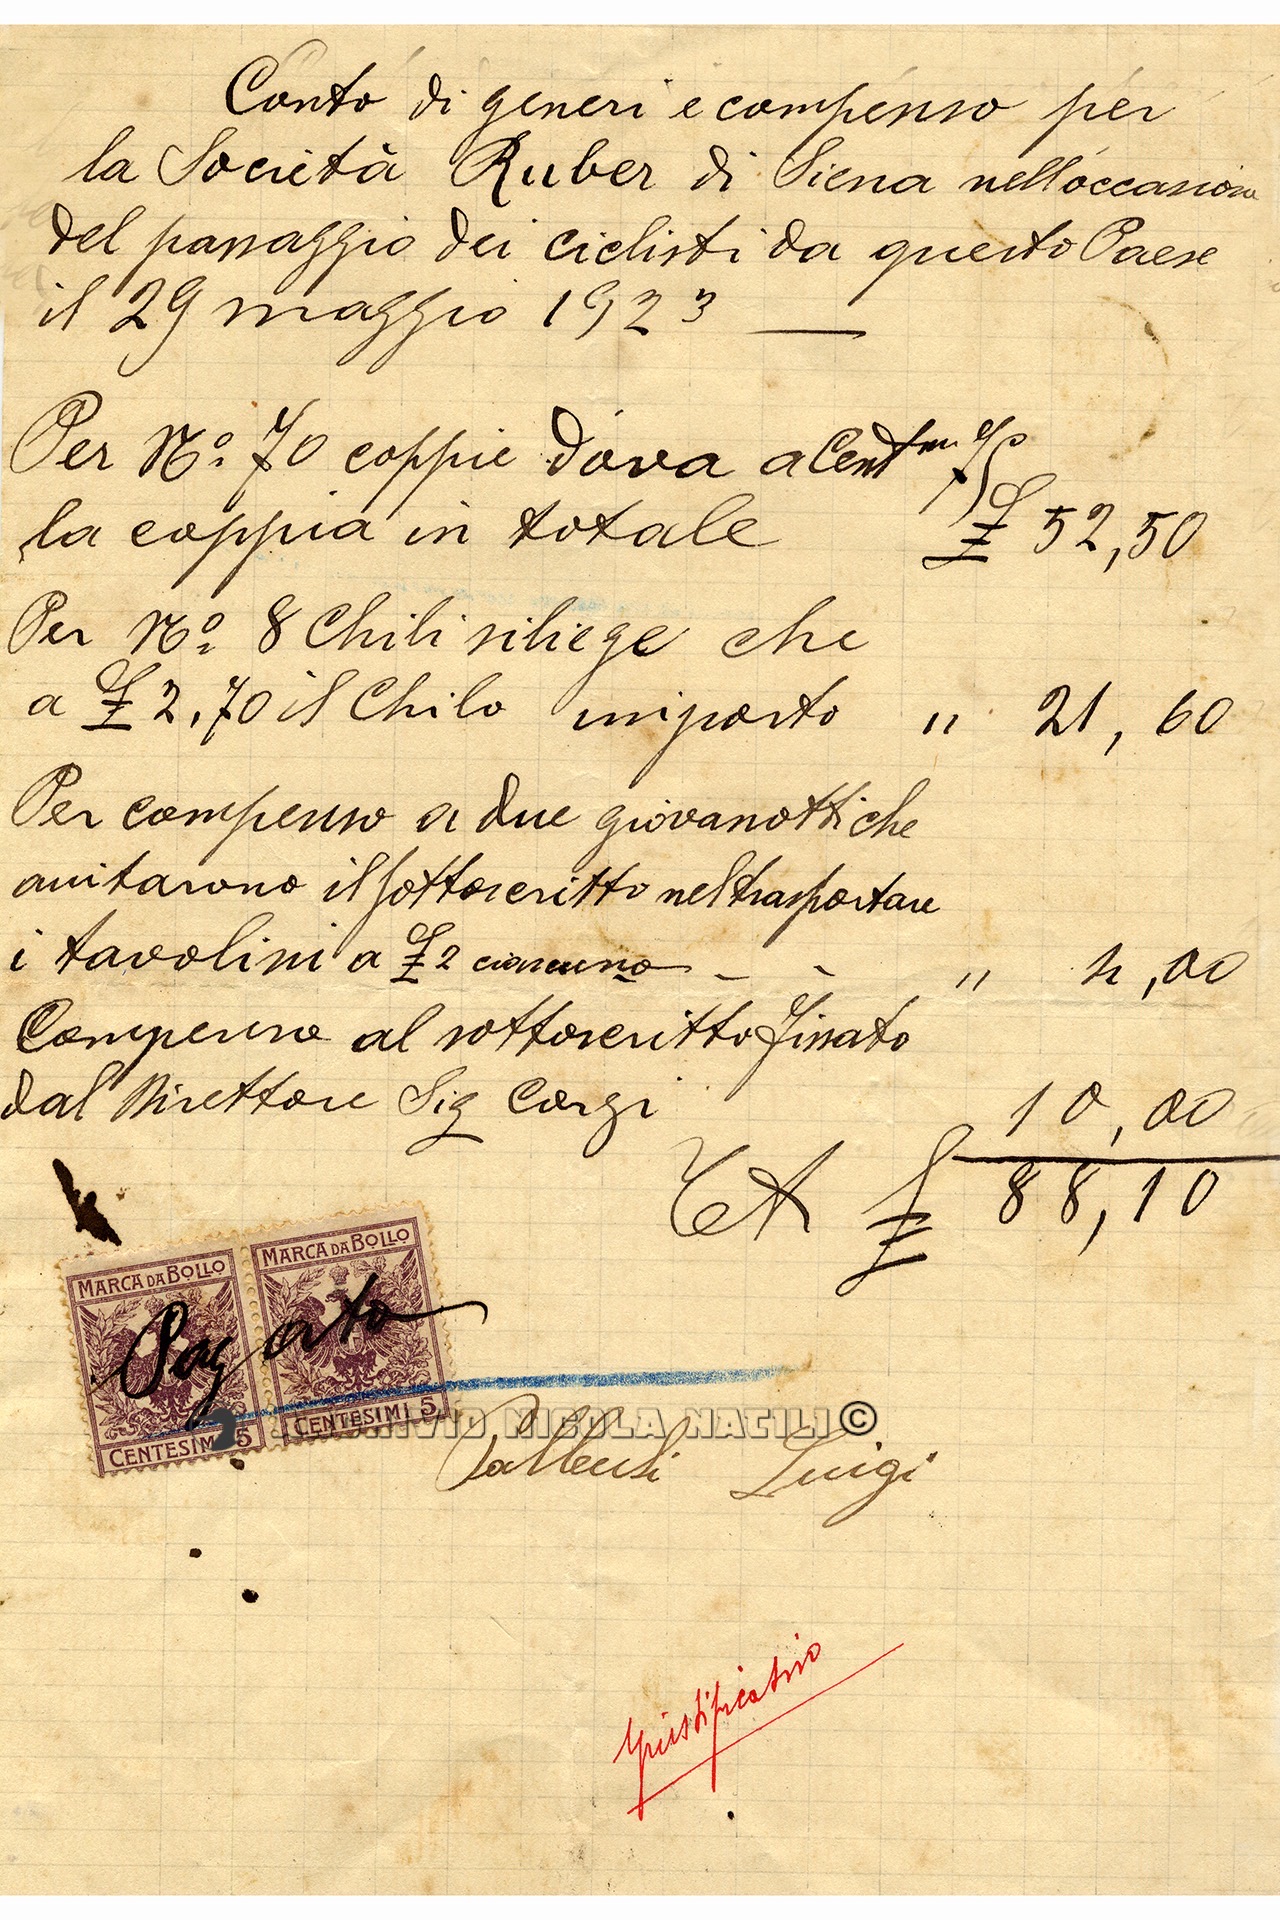 Conto di generi e compenso per
la Società Ruber di Siena nell'occasione
del passaggio dei ciclisti da questo Paese
il 29 maggio 1923 —
Per N.º 70 coppie d'ova a Centmi 75
la coppia in totale £ 52,50
Per N.º 8 Chili siliege che
a £ 2,70 il Chilo importo " 21,60
Per compenso a due giovanotti che
auitarono il sottoscritto nel trasportare
i tavolini a £ 2 ciascuno - - " 4,00
Compenso al sottoscritto fissato
dal Direttore Sig Corgi 10,00
£ 88,10
MARCA DA BOLLO MARCA DA BOLLO
Pagato
CENTESIMI 5 CENTESIMI 5
ARCHIVIO NICOLA NATILI ©
Luigi
Giustificativo